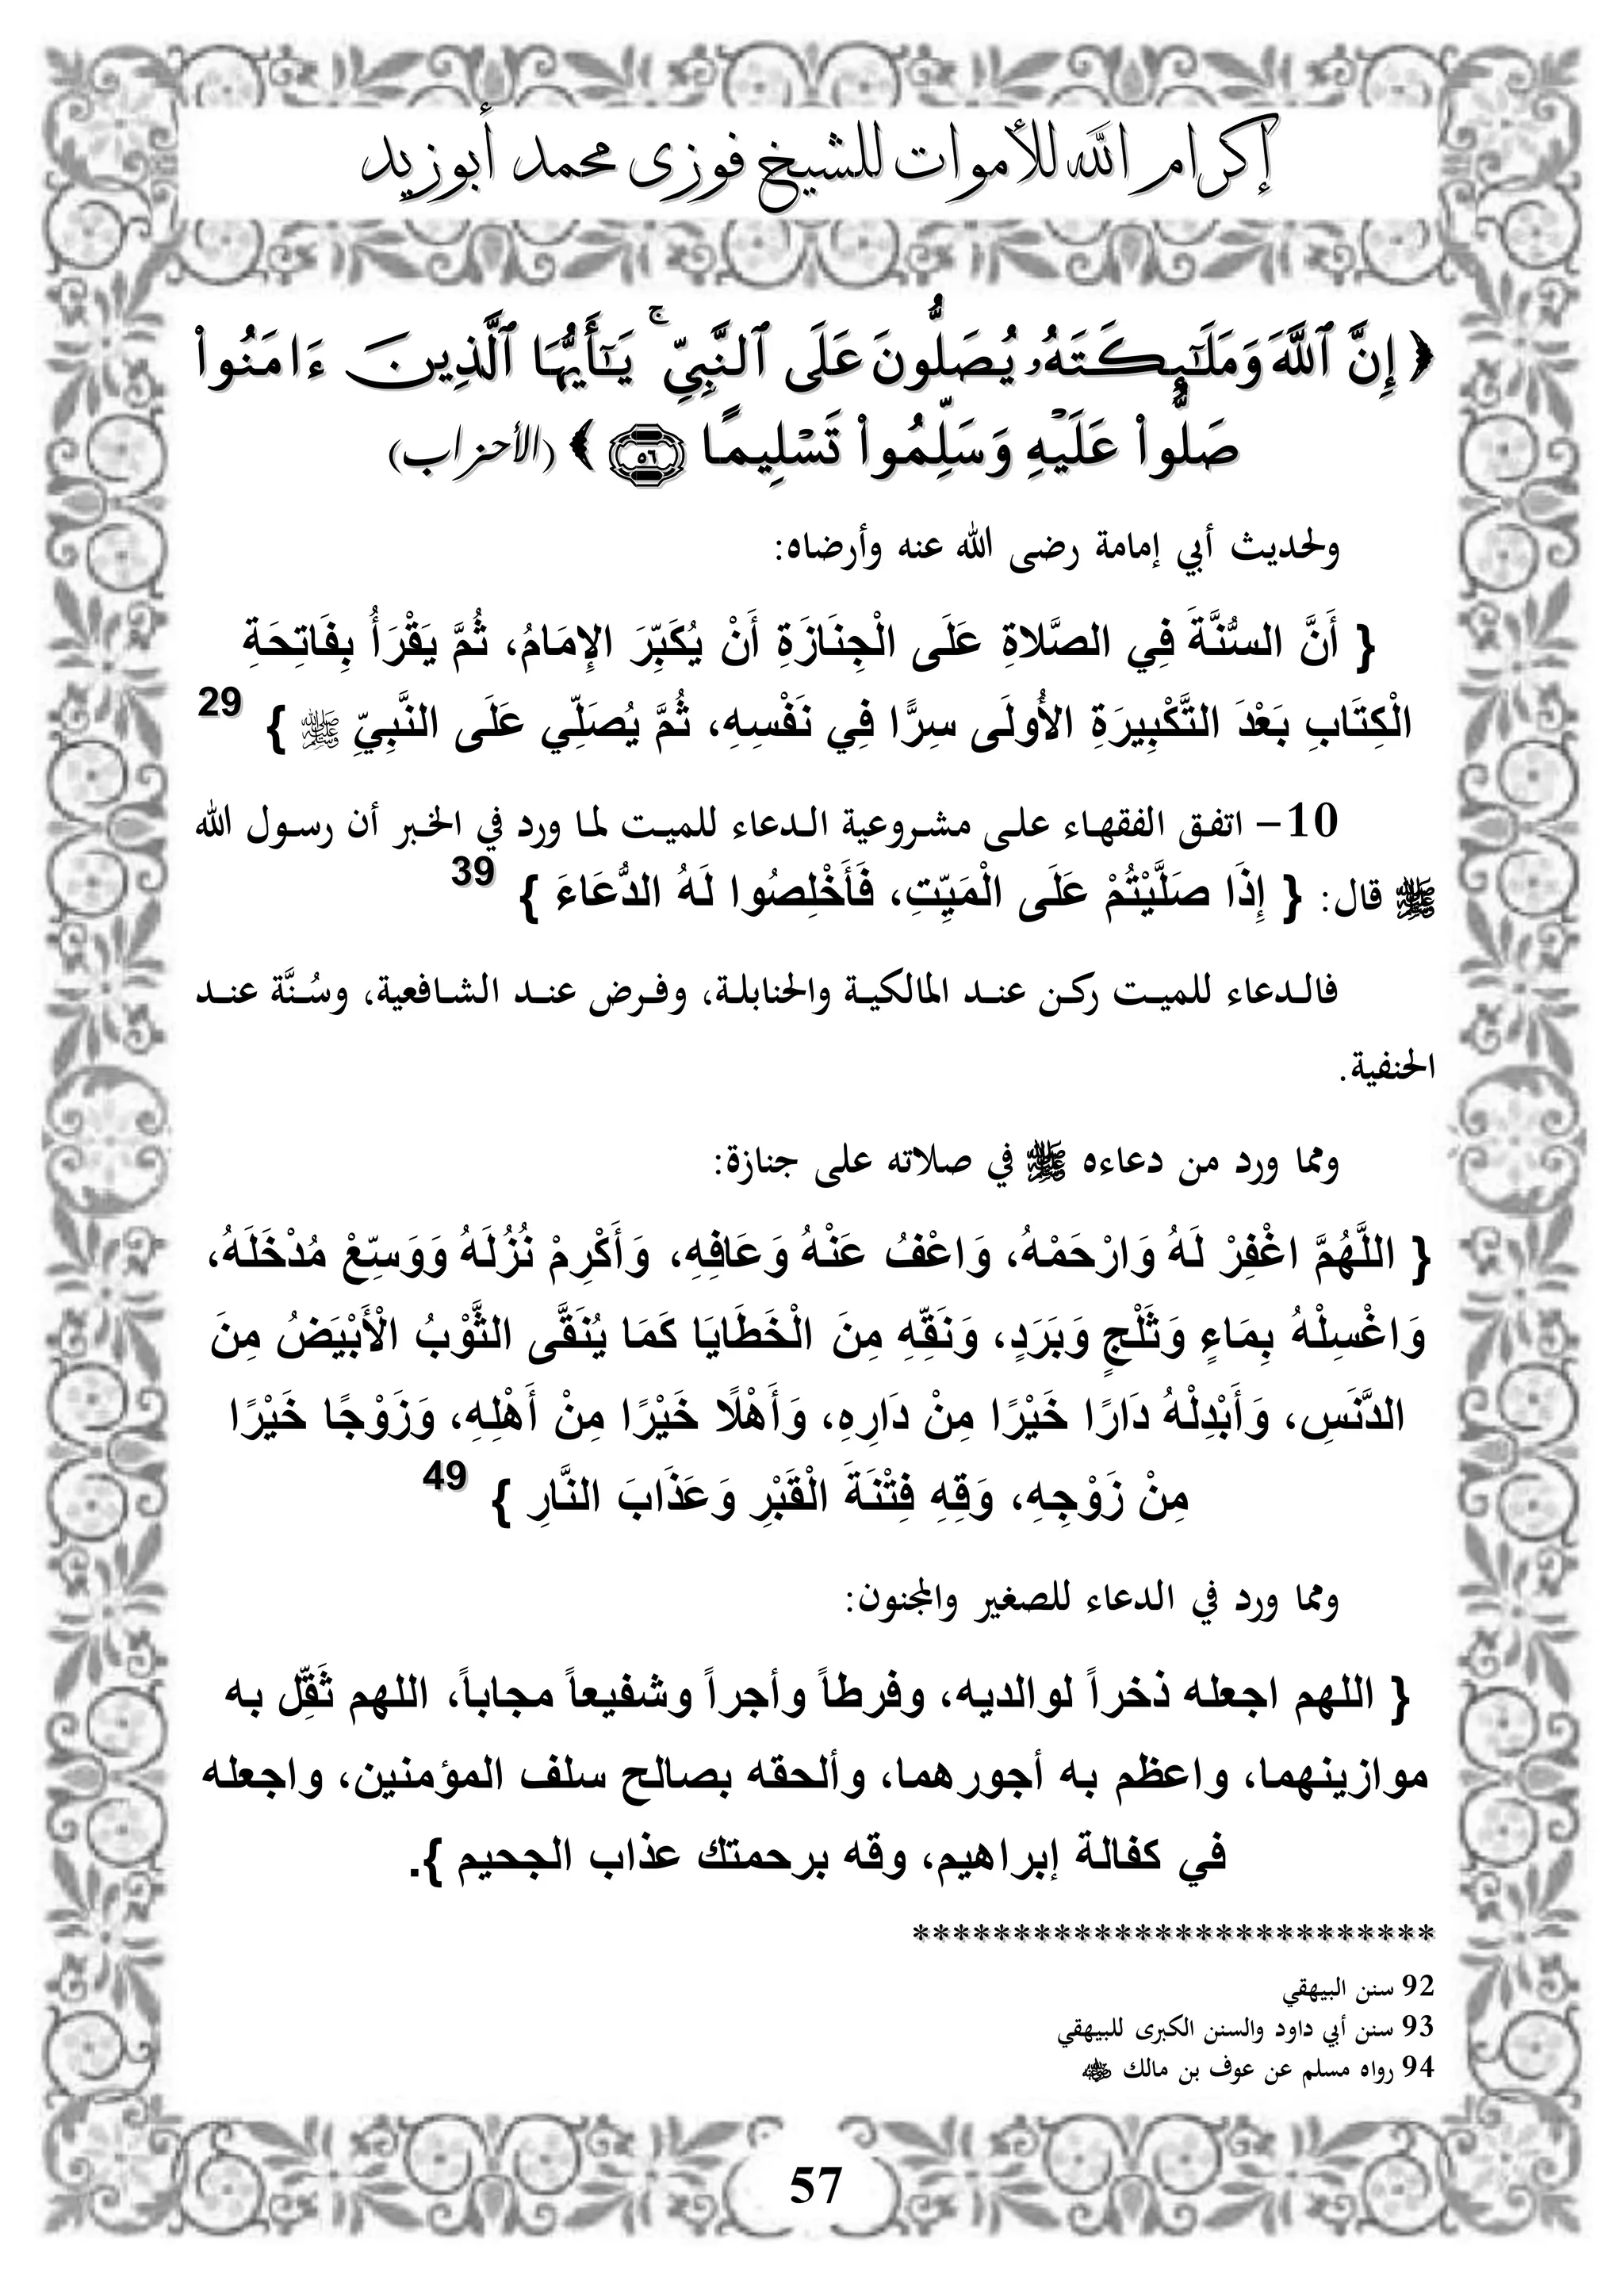 إكرام الله للأموات للشيخ فوزى محمد أبوزيد
﴿ إِنَّ ٱللَّهَ وَمَلَـٰٓئِكَتَهُۥ يُصَلُّونَ عَلَى ٱلنَّبِىِّ ۚ يَـٰٓأَيُّهَا ٱلَّذِينَ ءَامَنُوا۟
صَلُّوا۟ عَلَيْهِ وَسَلِّمُوا۟ تَسْلِيمًا ٥٦ ﴾ (الأحزاب)
ولحديث أبي إمامة رضى الله عنه وأرضاه:
{ أَنَّ السُّنَّةَ فِي الصَّلاةِ عَلَى الْجِنَازَةِ أَنْ يُكَبِّرَ الإِمَامُ، ثُمَّ يَقْرَأُ بِفَاتِحَةِ
الْكِتَابِ بَعْدَ التَّكْبِيرَةِ الأُولَى سِرًّا فِي نَفْسِهِ، ثُمَّ يُصَلِّي عَلَى النَّبِيِّ ﷺ } 29
10- اتفق الفقهاء على مشروعية الدعاء للميت لما ورد في الخبر أن رسول الله
ﷺ قال: { إِذَا صَلَّيْتُمْ عَلَى الْمَيِّتِ، فَأَخْلِصُوا لَهُ الدُّعَاءَ } 39
فالدعاء للميت ركن عند المالكية والحنابلة، وفرض عند الشافعية، وسُنَّة عند
الحنفية.
ومما ورد من دعاءه ﷺ في صلاته على جنازة:
{ اللَّهُمَّ اغْفِرْ لَهُ وَارْحَمْهُ، وَاعْفُ عَنْهُ وَعَافِهِ، وَأَكْرِمْ نُزُلَهُ وَوَسِّعْ مُدْخَلَهُ،
وَاغْسِلْهُ بِمَاءٍ وَثَلْجٍ وَبَرَدٍ، وَنَقِّهِ مِنَ الْخَطَايَا كَمَا يُنَقَّى الثَّوْبُ الْأَبْيَضُ مِنَ
الدَّنَسِ، وَأَبْدِلْهُ دَارًا خَيْرًا مِنْ دَارِهِ، وَأَهْلًا خَيْرًا مِنْ أَهْلِهِ، وَزَوْجًا خَيْرًا
مِنْ زَوْجِهِ، وَقِهِ فِتْنَةَ الْقَبْرِ وَعَذَابَ النَّارِ } 49
ومما ورد في الدعاء للصغير والمجنون:
{ اللهم اجعله ذخراً لوالديه، وفرطاً وأجراً وشفيعاً مجاباً، اللهم ثَقِّل به
موازينهما، واعظم به أجورهما، وألحقه بصالح سلف المؤمنين، واجعله
في كفالة إبراهيم، وقه برحمتك عذاب الجحيم }.
**************************
92 سنن البيهقي
93 سنن أبي داود والسنن الكبرى للبيهقي
94 رواه مسلم عن عوف بن مالك
57